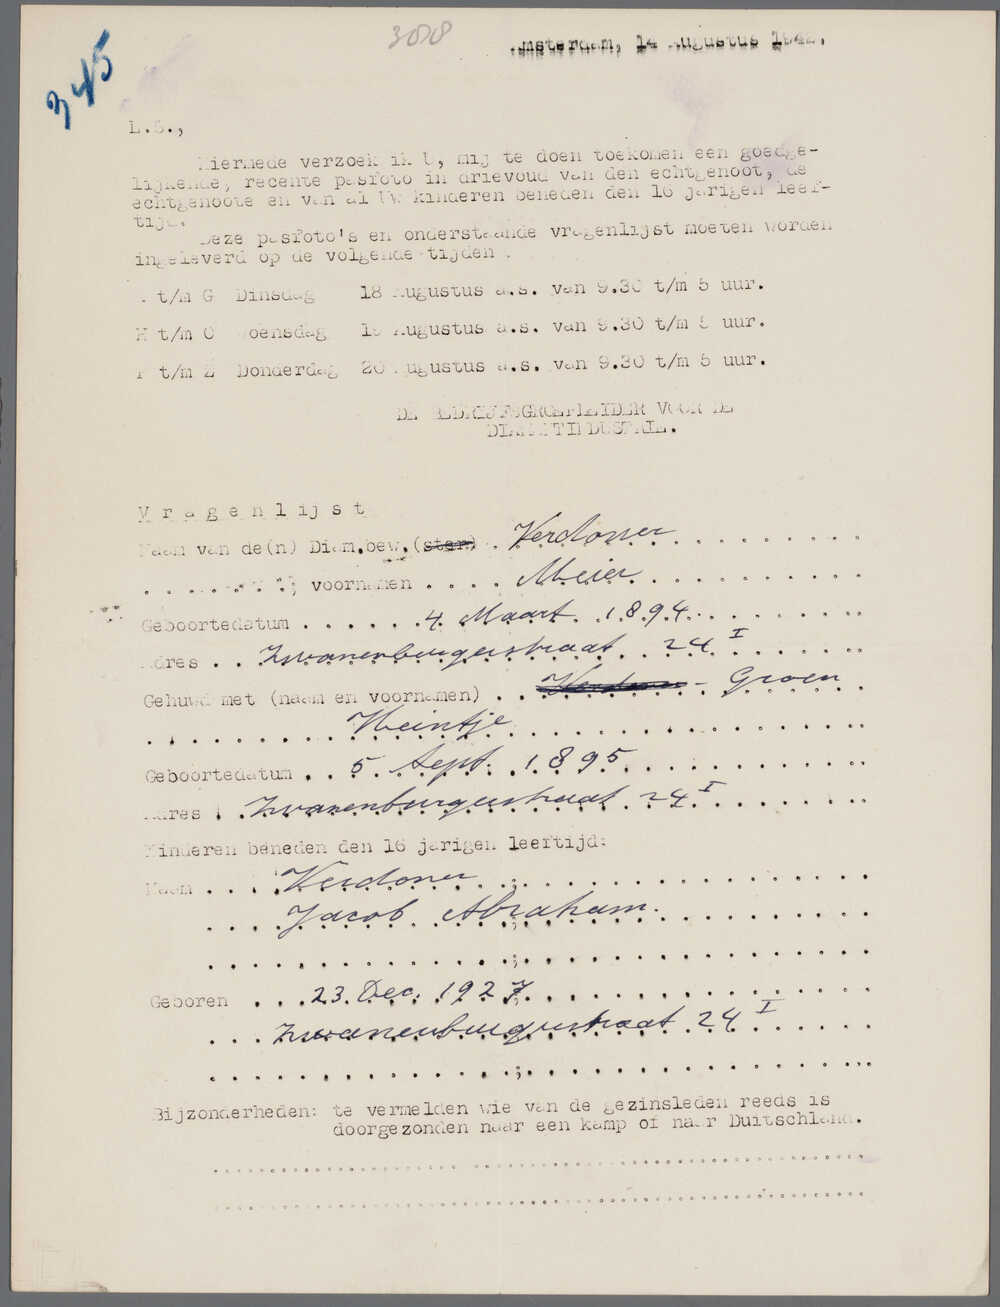 345
3088
Amsterdam, 14 Augustus 1942.
L.S.,
Hiermede verzoek ik U, mij te doen toekomen een goedge-
lijkende, recente pasfoto in drievoud van den echtgenoot, de
echtgenoote en van al Uw kinderen beneden den 16 jarigen leef-
tijd.
Deze pasfoto's en onderstaande vragenlijst moeten worden
ingeleverd op de volgende tijden.
A t/m G Dinsdag 18 Augustus a.s. van 9.30 t/m 5 uur.
H t/m O Woensdag 19 Augustus a.s. van 9.30 t/m 5 uur.
P t/m Z Donderdag 20 Augustus a.s. van 9.30 t/m 5 uur.
DE BEDRIJFSGROEPLEIDER VOOR DE
DIAMANTINDUSTRIE.
Vragenlijst
Naam van de(n) Diam.bew.(ster) . Verdoner
; voornamen .... Meier
Geboortedatum ...... 4 Maart 1894
Adres .. Zwanenburgerstraat 24 I
Gehuwd met (naam en voornamen) .. - Groen
Heintje
Geboortedatum .. 5 Sept. 1895
Adres . Zwanenburgerstraat 24 I
Kinderen beneden den 16 jarigen leeftijd:
Naam .... Verdoner ;
Jacob Abraham. ;
;
Geboren ... 23 Dec. 1927
Zwanenburgerstraat 24 I
;
Bijzonderheden: te vermelden wie van de gezinsleden reeds is
doorgezonden naar een kamp of naar Duitschland.